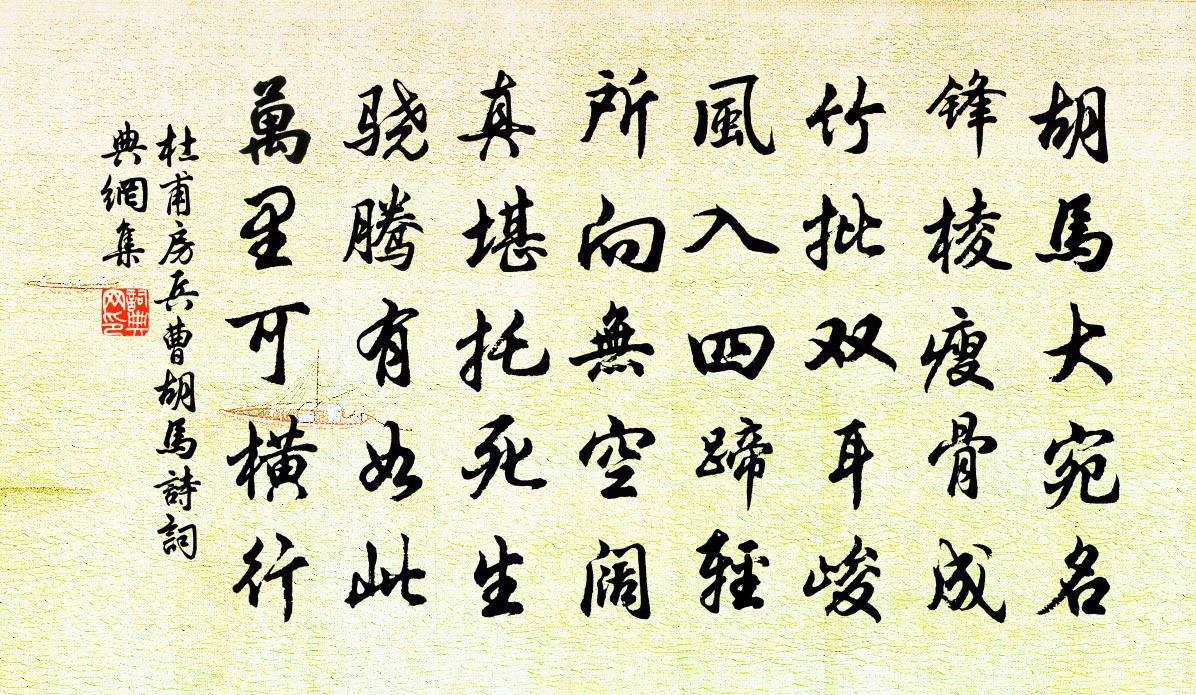 胡馬大宛名
锋棱瘦骨成
竹批双耳峻
風入四蹄輕
所向無空阔
真堪托死生
骁腾有如此
萬里可横行
杜甫房兵曹胡馬詩詞
典網集
詞典网印